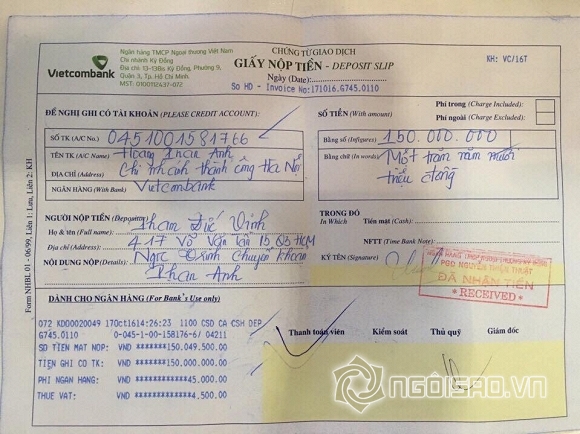 Vietcombank
Ngân hàng TMCP Ngoại thương Việt Nam
Chi nhánh Kỳ Đồng
Địa chỉ: 13-13Bis Kỳ Đồng, Phường 9,
Quận 3, Tp. Hồ Chí Minh
MST: 0100112437-072
CHỨNG TỪ GIAO DỊCH
GIẤY NỘP TIỀN - DEPOSIT SLIP
Ngày (Date):
So HD - Invoice No:171016.G745.0110
KH: VC/16T
ĐỀ NGHỊ GHI CÓ TÀI KHOẢN (PLEASE CREDIT ACCOUNT):
SỐ TK (A/C No.) 0451001581766
TÊN TK (A/C Name) Hoàng Phan Anh
ĐỊA CHỈ (Address) Chi nhánh thành công Hà Nội
NGÂN HÀNG (With Bank) Vietcombank
SỐ TIỀN (With amount)
Phí trong (Charge Included):
Phí ngoài (Charge Excluded):
Bằng số (Infigures) 150.000.000
Bằng chữ (In words) Một trăm năm mươi
triệu đồng
NGƯỜI NỘP TIỀN (Depositor)
Họ & tên (Full name): Phạm Đức Vinh
Địa chỉ (Address) 417 Võ Văn Tần P5 Q3 HCM
NỘI DUNG NỘP (Details): Ngọc Trinh chuyển khoản
Phan Anh
TRONG ĐÓ
In Which
Tiền mặt (Cash):
NFTT (Time Bank Note)
KÝ TÊN (Signature)
PGD NGUYỄN THIỆN THUẬT
ĐÃ NHẬN TIỀN
* RECEIVED *
DÀNH CHO NGÂN HÀNG (For Bank's Use only)
Thanh toán viên
Kiểm soát
Thủ quỹ
Giám đốc
072 KDG0020049 17Oct1614:26:23 1100 CSD CA CSH DEP
G745.0110 0-045-1-00-158176-6/ 04211
SO TIEN MAT NOP: VND **********150,049,500.00
TIEN GHI CO TK: VND **********150,000,000.00
PHI NGAN HANG: VND **************45,000.00
THUE VAT: VND ***************4,500.00
Form NHBL 01 - 06/99, Liên 1: Lưu, Liên 2: KH
NGÔISAO.VN